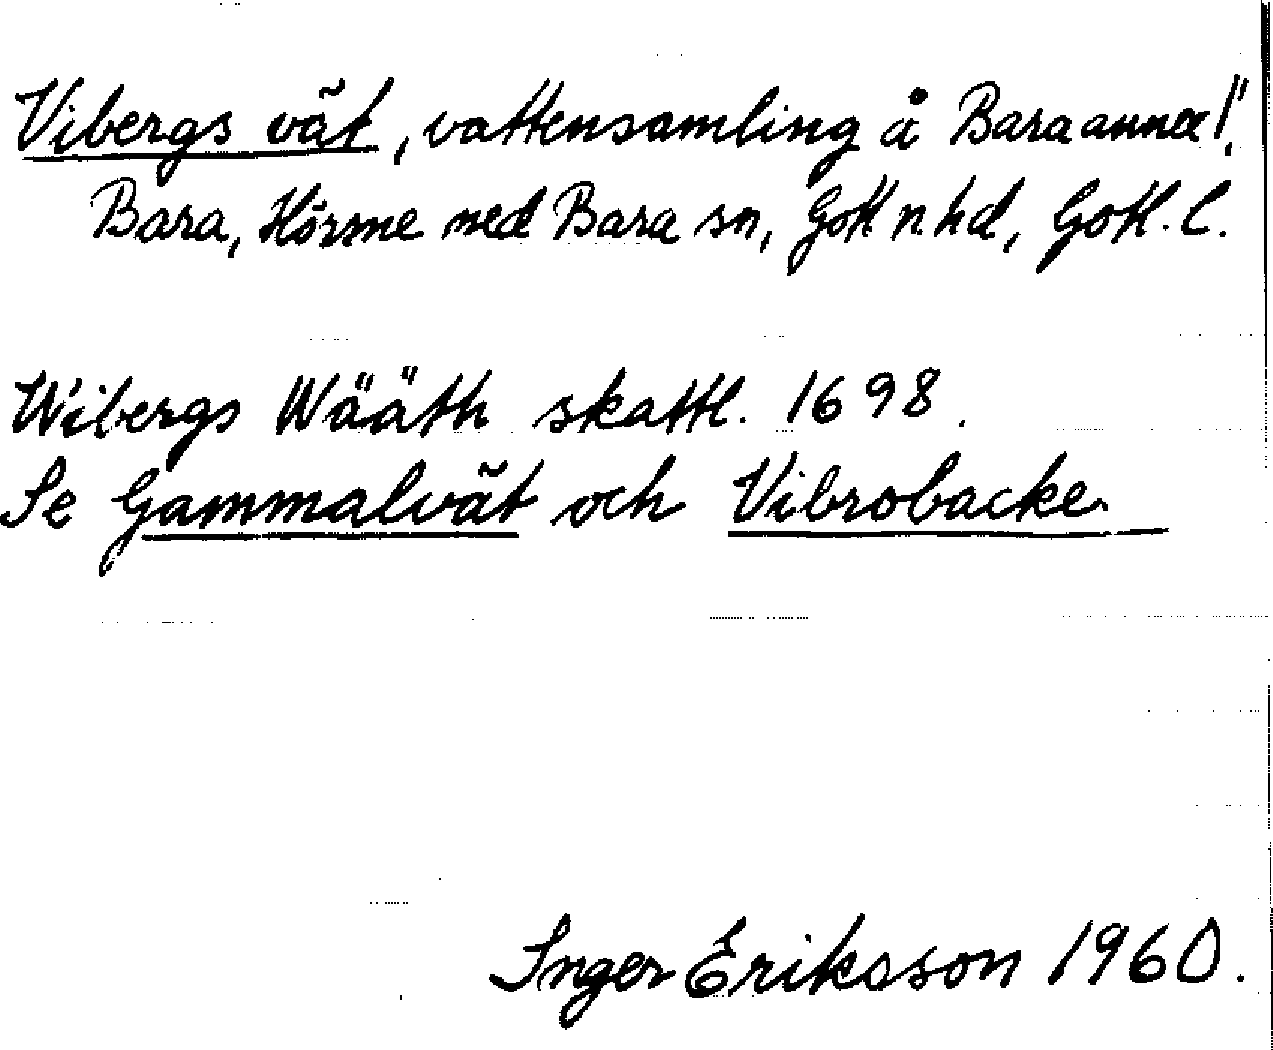 Vibergs vät, vattensamling å Bara annex!",
Bara, Hörsne med Bara sn, Gotl n. hd, Gotl. l.
Wibergs Wääth skattl. 1698.
Se Gammalvät och Vibrobacke.
Inger Eriksson 1960.